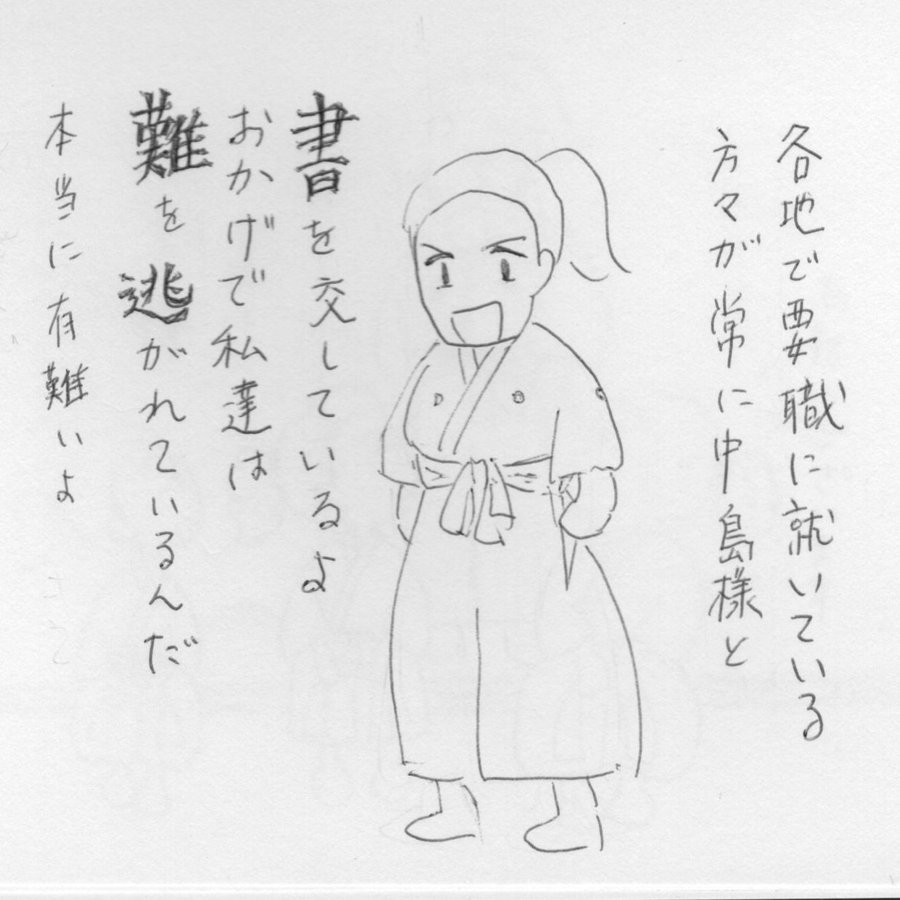 各地で要職に就いている
方々が常に中島様と
書を交しているよ
おかげで私達は
難を逃がれているんだ
本当に有難いよ